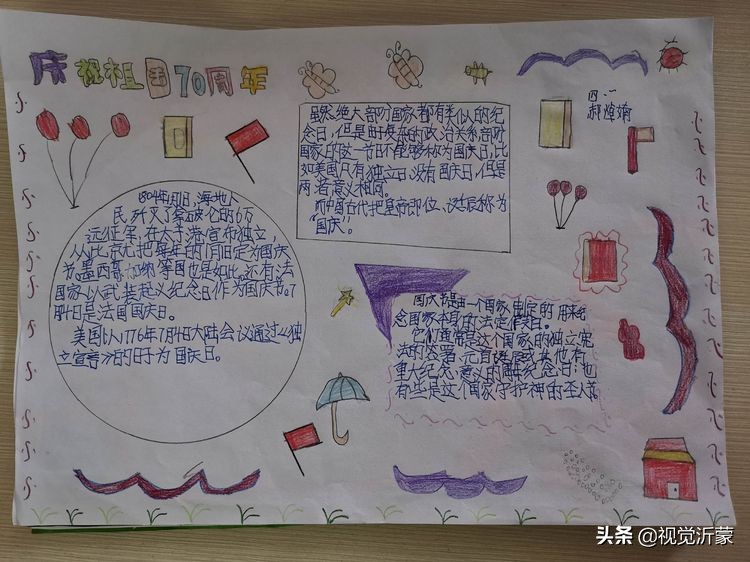 庆祝祖国70周年
四、一
虽然绝大部份国家都有类似的纪
念日,但是由于复杂的政治关系,部份
国家的这一节日不能够称为国庆日,比
如美国只有独立日,没有国庆日,但是
两者意义相同。
而中国古代把皇帝即位、诞辰称为
“国庆”。
1804年1月1日,海地人
民歼灭了拿破仑的6万
远征军,在太子港宣布独立,
从此
把每年的1月1日定为国庆
节。墨西哥、加纳等国也是如此。还有法
国家以武装起义纪念日作为国庆节。7
月14日是法国国庆日。
美国以1776年7月4日大陆会议通过《独
立宣言》的日子为国庆日。
国庆节是由一个国家制定的用来纪
念国家本身的法定节假日。
它们通常是这个国家的独立、宪
法的签署、元首诞辰或其他有
重大纪念意义的周年纪念日;也
有些是这个国家守护神的圣人节。
头条@视觉沂蒙